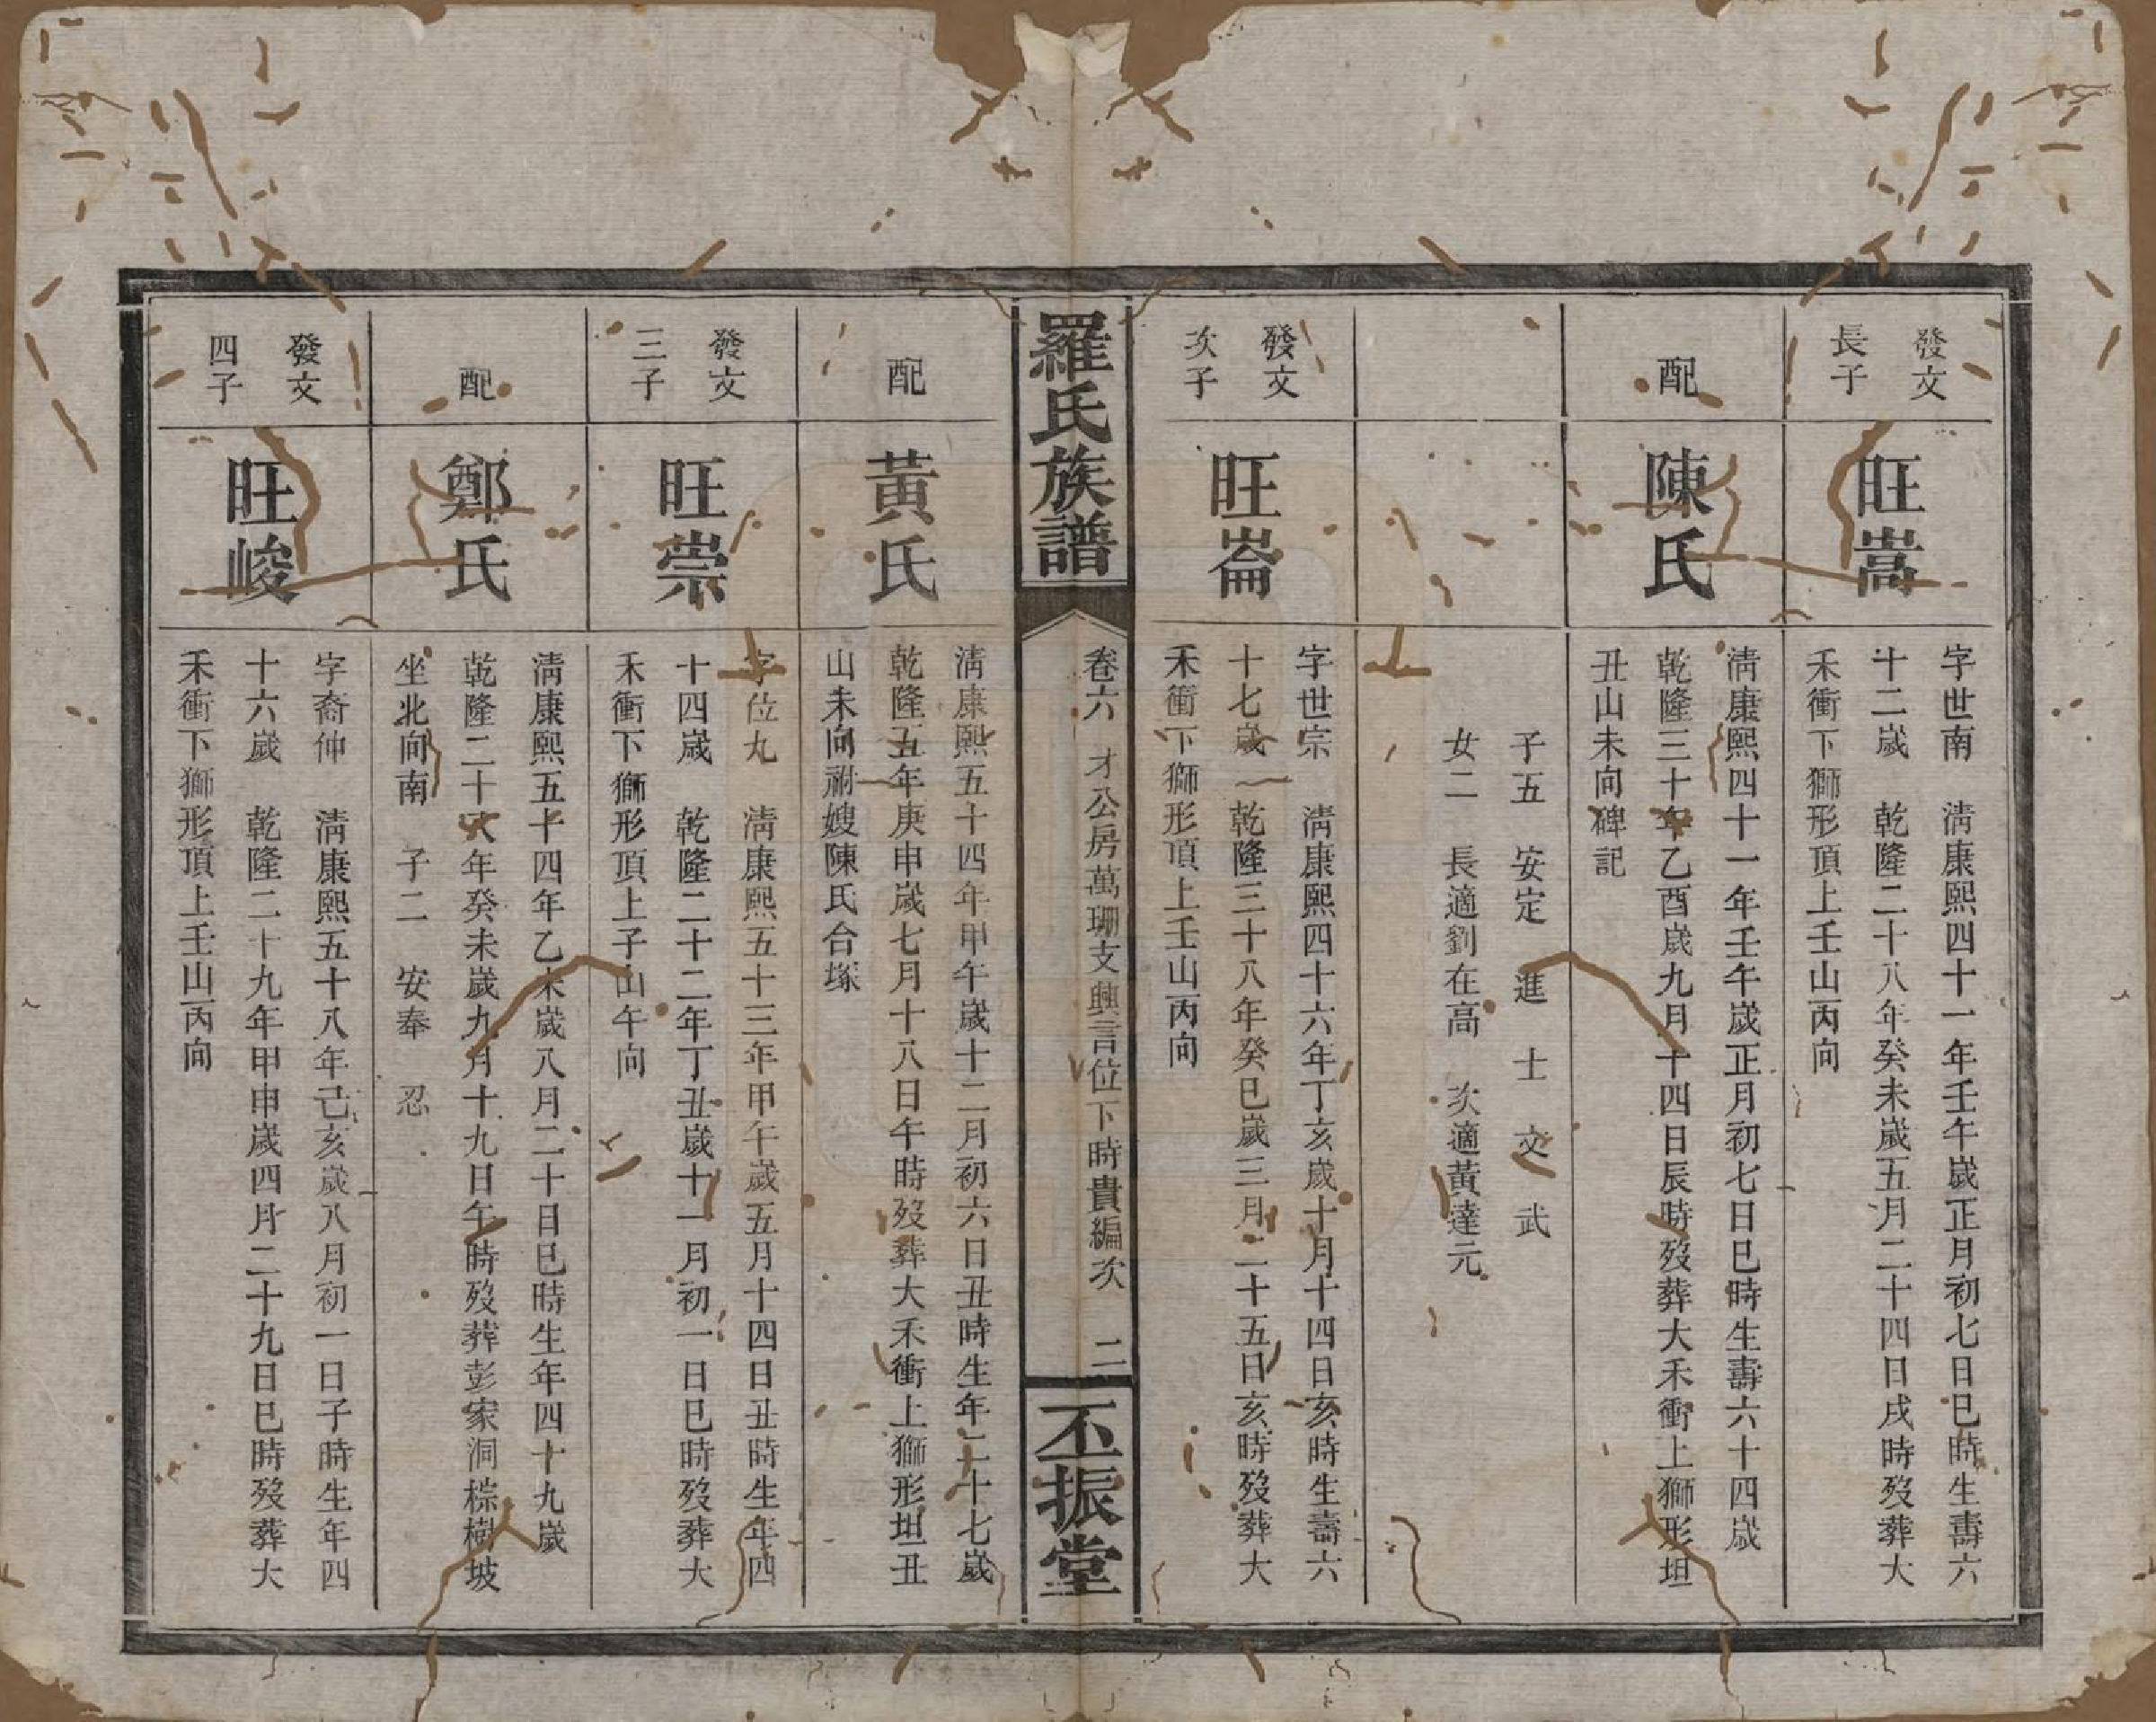 發文
長子
旺嵩
字世南　淸康熙四十一年壬午歲正月初七日巳時生壽六
十二歲　乾隆二十八年癸未歲五月二十四日戌時歿葬大
禾衝下獅形頂上壬山丙向
配
陳氏
淸康熙四十一年壬午歲正月初七日巳時生壽六十四歲
乾隆三十年乙酉歲九月十四日辰時歿葬大禾衝上獅形坦
丑山未向碑記
子五　安定　進　士　交　武
女二　長適劉在高　次適黃達元
發文
次子
旺崙
字世宗　淸康熙四十六年丁亥歲十月十四日亥時生壽六
十七歲　乾隆三十八年癸巳歲三月二十五日亥時歿葬大
禾衝下獅形頂上壬山丙向
羅氏族譜
卷六　才公房萬珊支興言位下時貴編次　二
丕振堂
配
黃氏
淸康熙五十四年甲午歲十二月初六日丑時生年二十七歲
乾隆五年庚申歲七月十八日午時歿葬大禾衝上獅形坦丑
山未向祔嫂陳氏合塚
發文
三子
旺崇
字位九　淸康熙五十三年甲午歲五月十四日丑時生年四
十四歲　乾隆二十二年丁丑歲十一月初一日巳時歿葬大
禾衝下獅形頂上子山午向
配
鄭氏
淸康熙五十四年乙未歲八月二十日巳時生年四十九歲
乾隆二十八年癸未歲九月十九日午時歿葬彭家洞棕樹坡
坐北向南　子二　安奉　忍
發文
四子
旺峻
字裔仲　淸康熙五十八年己亥歲八月初一日子時生年四
十六歲　乾隆二十九年甲申歲四月二十九日巳時歿葬大
禾衝下獅形頂上壬山丙向